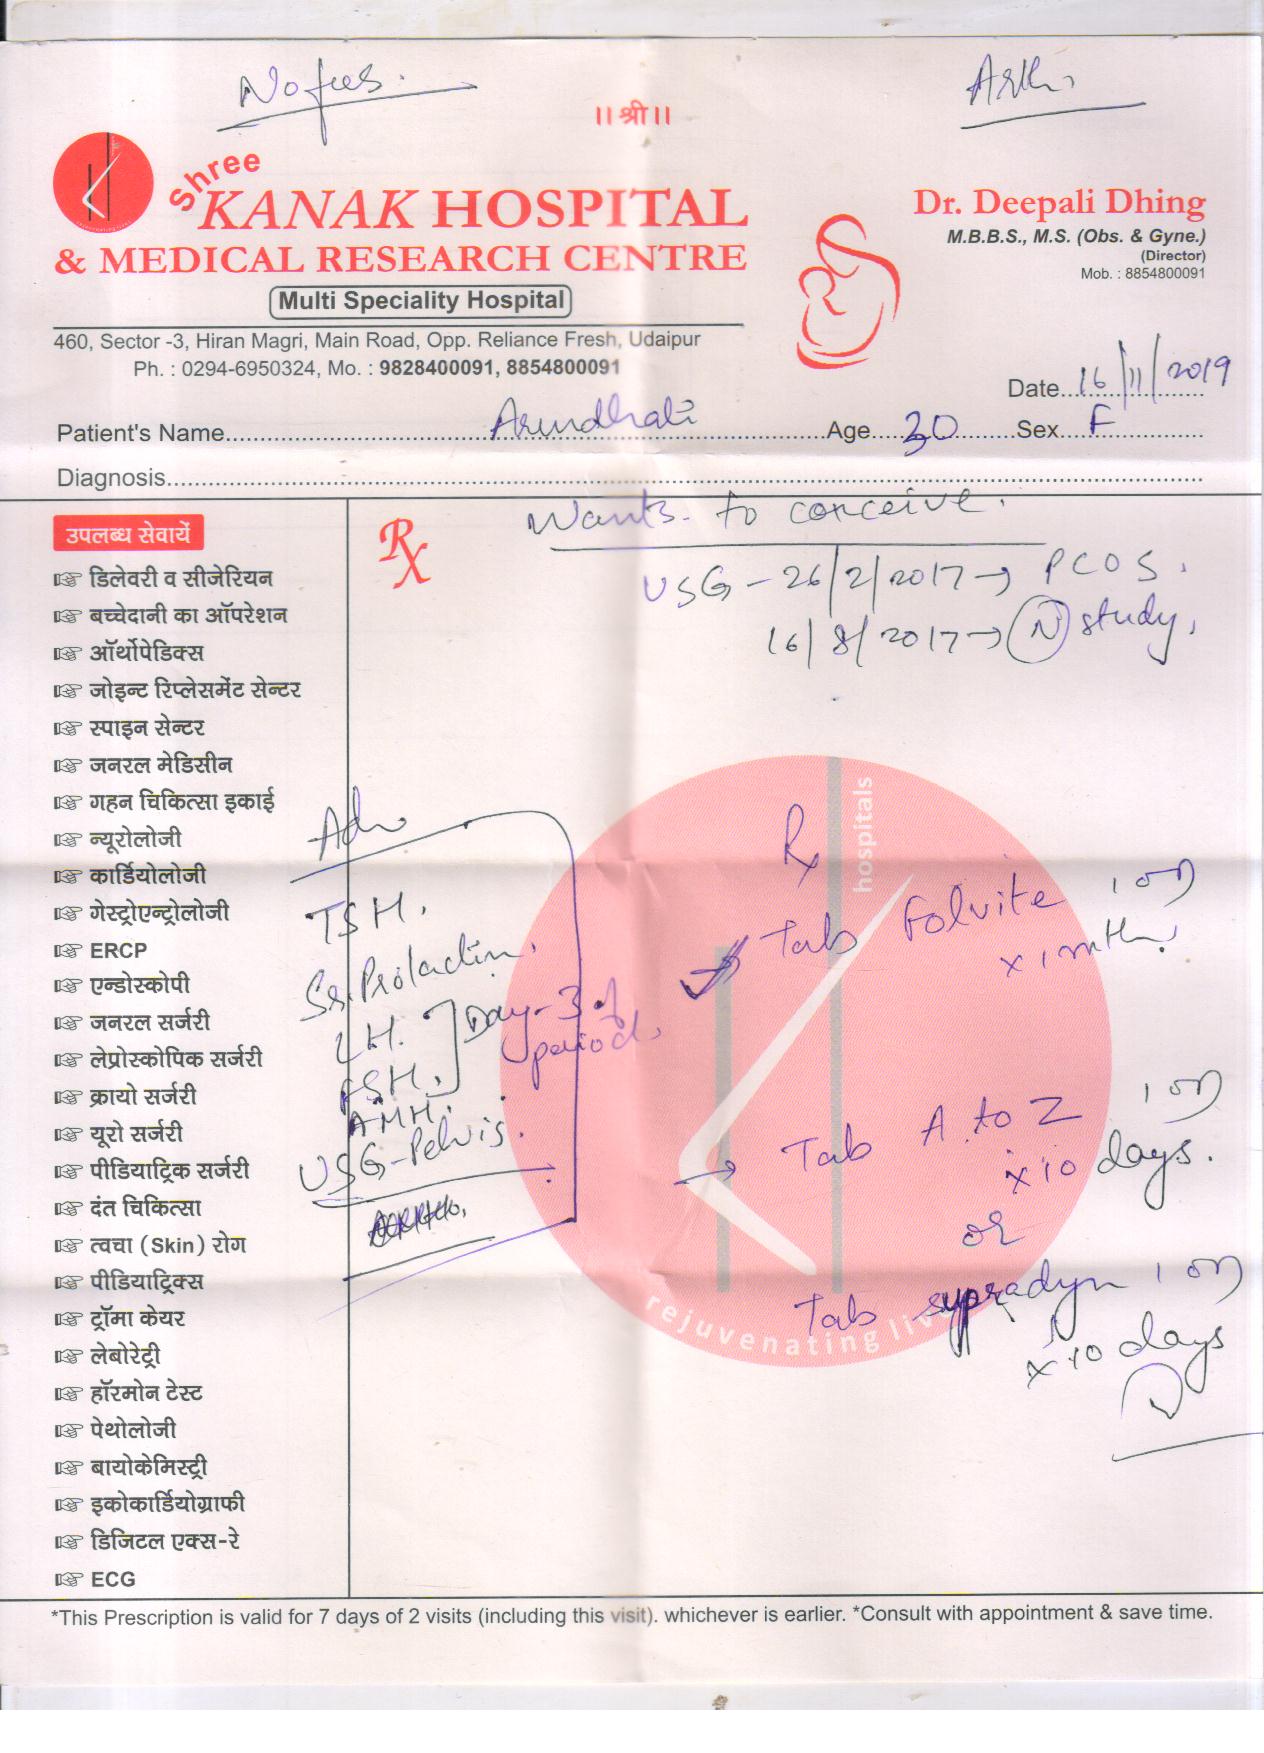 No fees.
॥ श्री ॥
Shree
KANAK HOSPITAL
& MEDICAL RESEARCH CENTRE
Multi Speciality Hospital
460, Sector -3, Hiran Magri, Main Road, Opp. Reliance Fresh, Udaipur
Ph. : 0294-6950324, Mo. : 9828400091, 8854800091
Dr. Deepali Dhing
M.B.B.S., M.S. (Obs. & Gyne.)
(Director)
Mob. : 8854800091
Date 16/11/2019
Patient's Name Arundhati Age 30 Sex F
Diagnosis
Wants to conceive.
USG - 26/2/2017 → PCOS.
16/8/2017 → (N) study,
उपलब्ध सेवायें
डिलेवरी व सीजेरियन
बच्चेदानी का ऑपरेशन
ऑर्थोपेडिक्स
जोइन्ट रिप्लेसमेंट सेन्टर
स्पाइन सेन्टर
जनरल मेडिसीन
गहन चिकित्सा इकाई
न्यूरोलोजी
कार्डियोलोजी
गेस्ट्रोएन्ट्रोलोजी
ERCP
एन्डोस्कोपी
जनरल सर्जरी
लेप्रोस्कोपिक सर्जरी
क्रायो सर्जरी
यूरो सर्जरी
पीडियाट्रिक सर्जरी
दंत चिकित्सा
त्वचा (Skin) रोग
पीडियाट्रिक्स
ट्रॉमा केयर
लेबोरेट्री
हॉरमोन टेस्ट
पेथोलोजी
बायोकेमिस्ट्री
इकोकार्डियोग्राफी
डिजिटल एक्स-रे
ECG
Rx
Adv
TSH.
Sr. Prolactin.
LH. ] Day-3 of
FSH. ] period.
AMH.
USG-Pelvis.
Rx
Tab Folvite 1 OD
x 1 mth.
→ Tab A to Z 1 OD
x 10 days.
or
Tab supradyn 1 OD
x 10 days
hospitals
rejuvenating live
*This Prescription is valid for 7 days of 2 visits (including this visit). whichever is earlier. *Consult with appointment & save time.